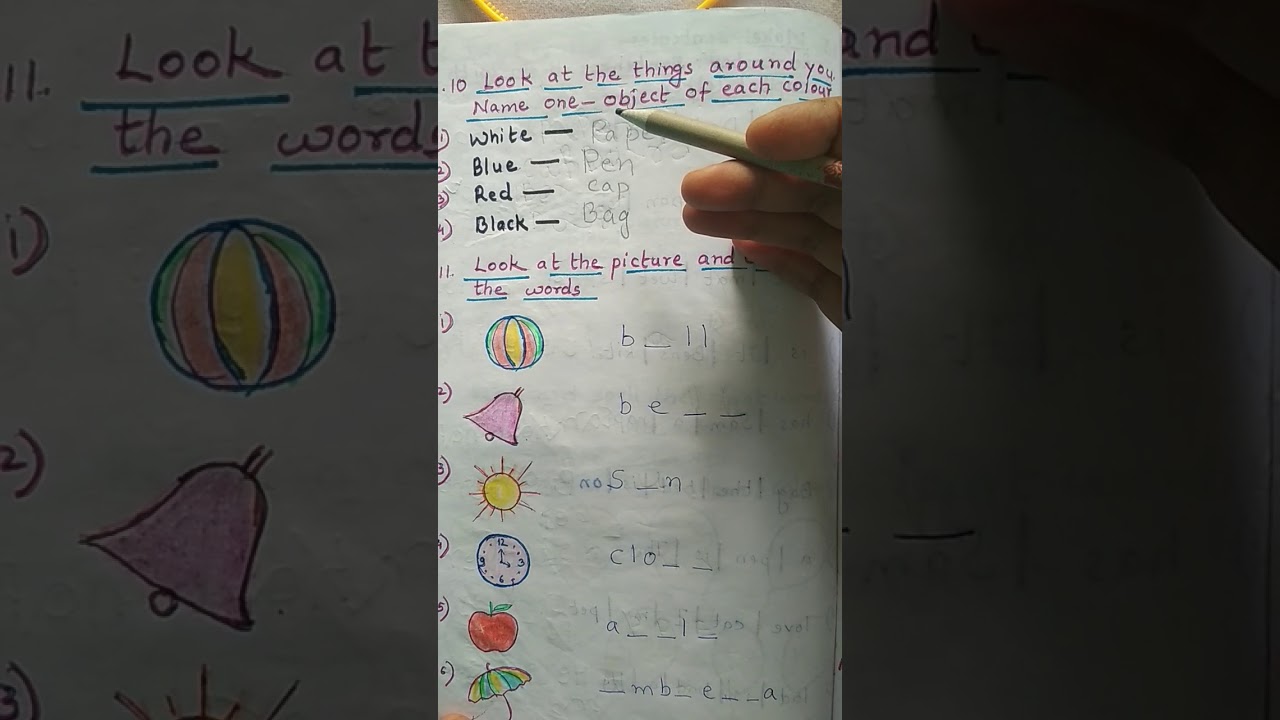 10 Look at the things around you.
Name one-object of each colour
1) White — Paper
2) Blue — Pen
3) Red — cap
4) Black — Bag
11. Look at the picture and
the words
1) b _ l l
2) b e _ _
3) s _ n
4) c l o _ _
12
9 3
6
5) a _ _ l _
6) _ m b _ e _ _ a